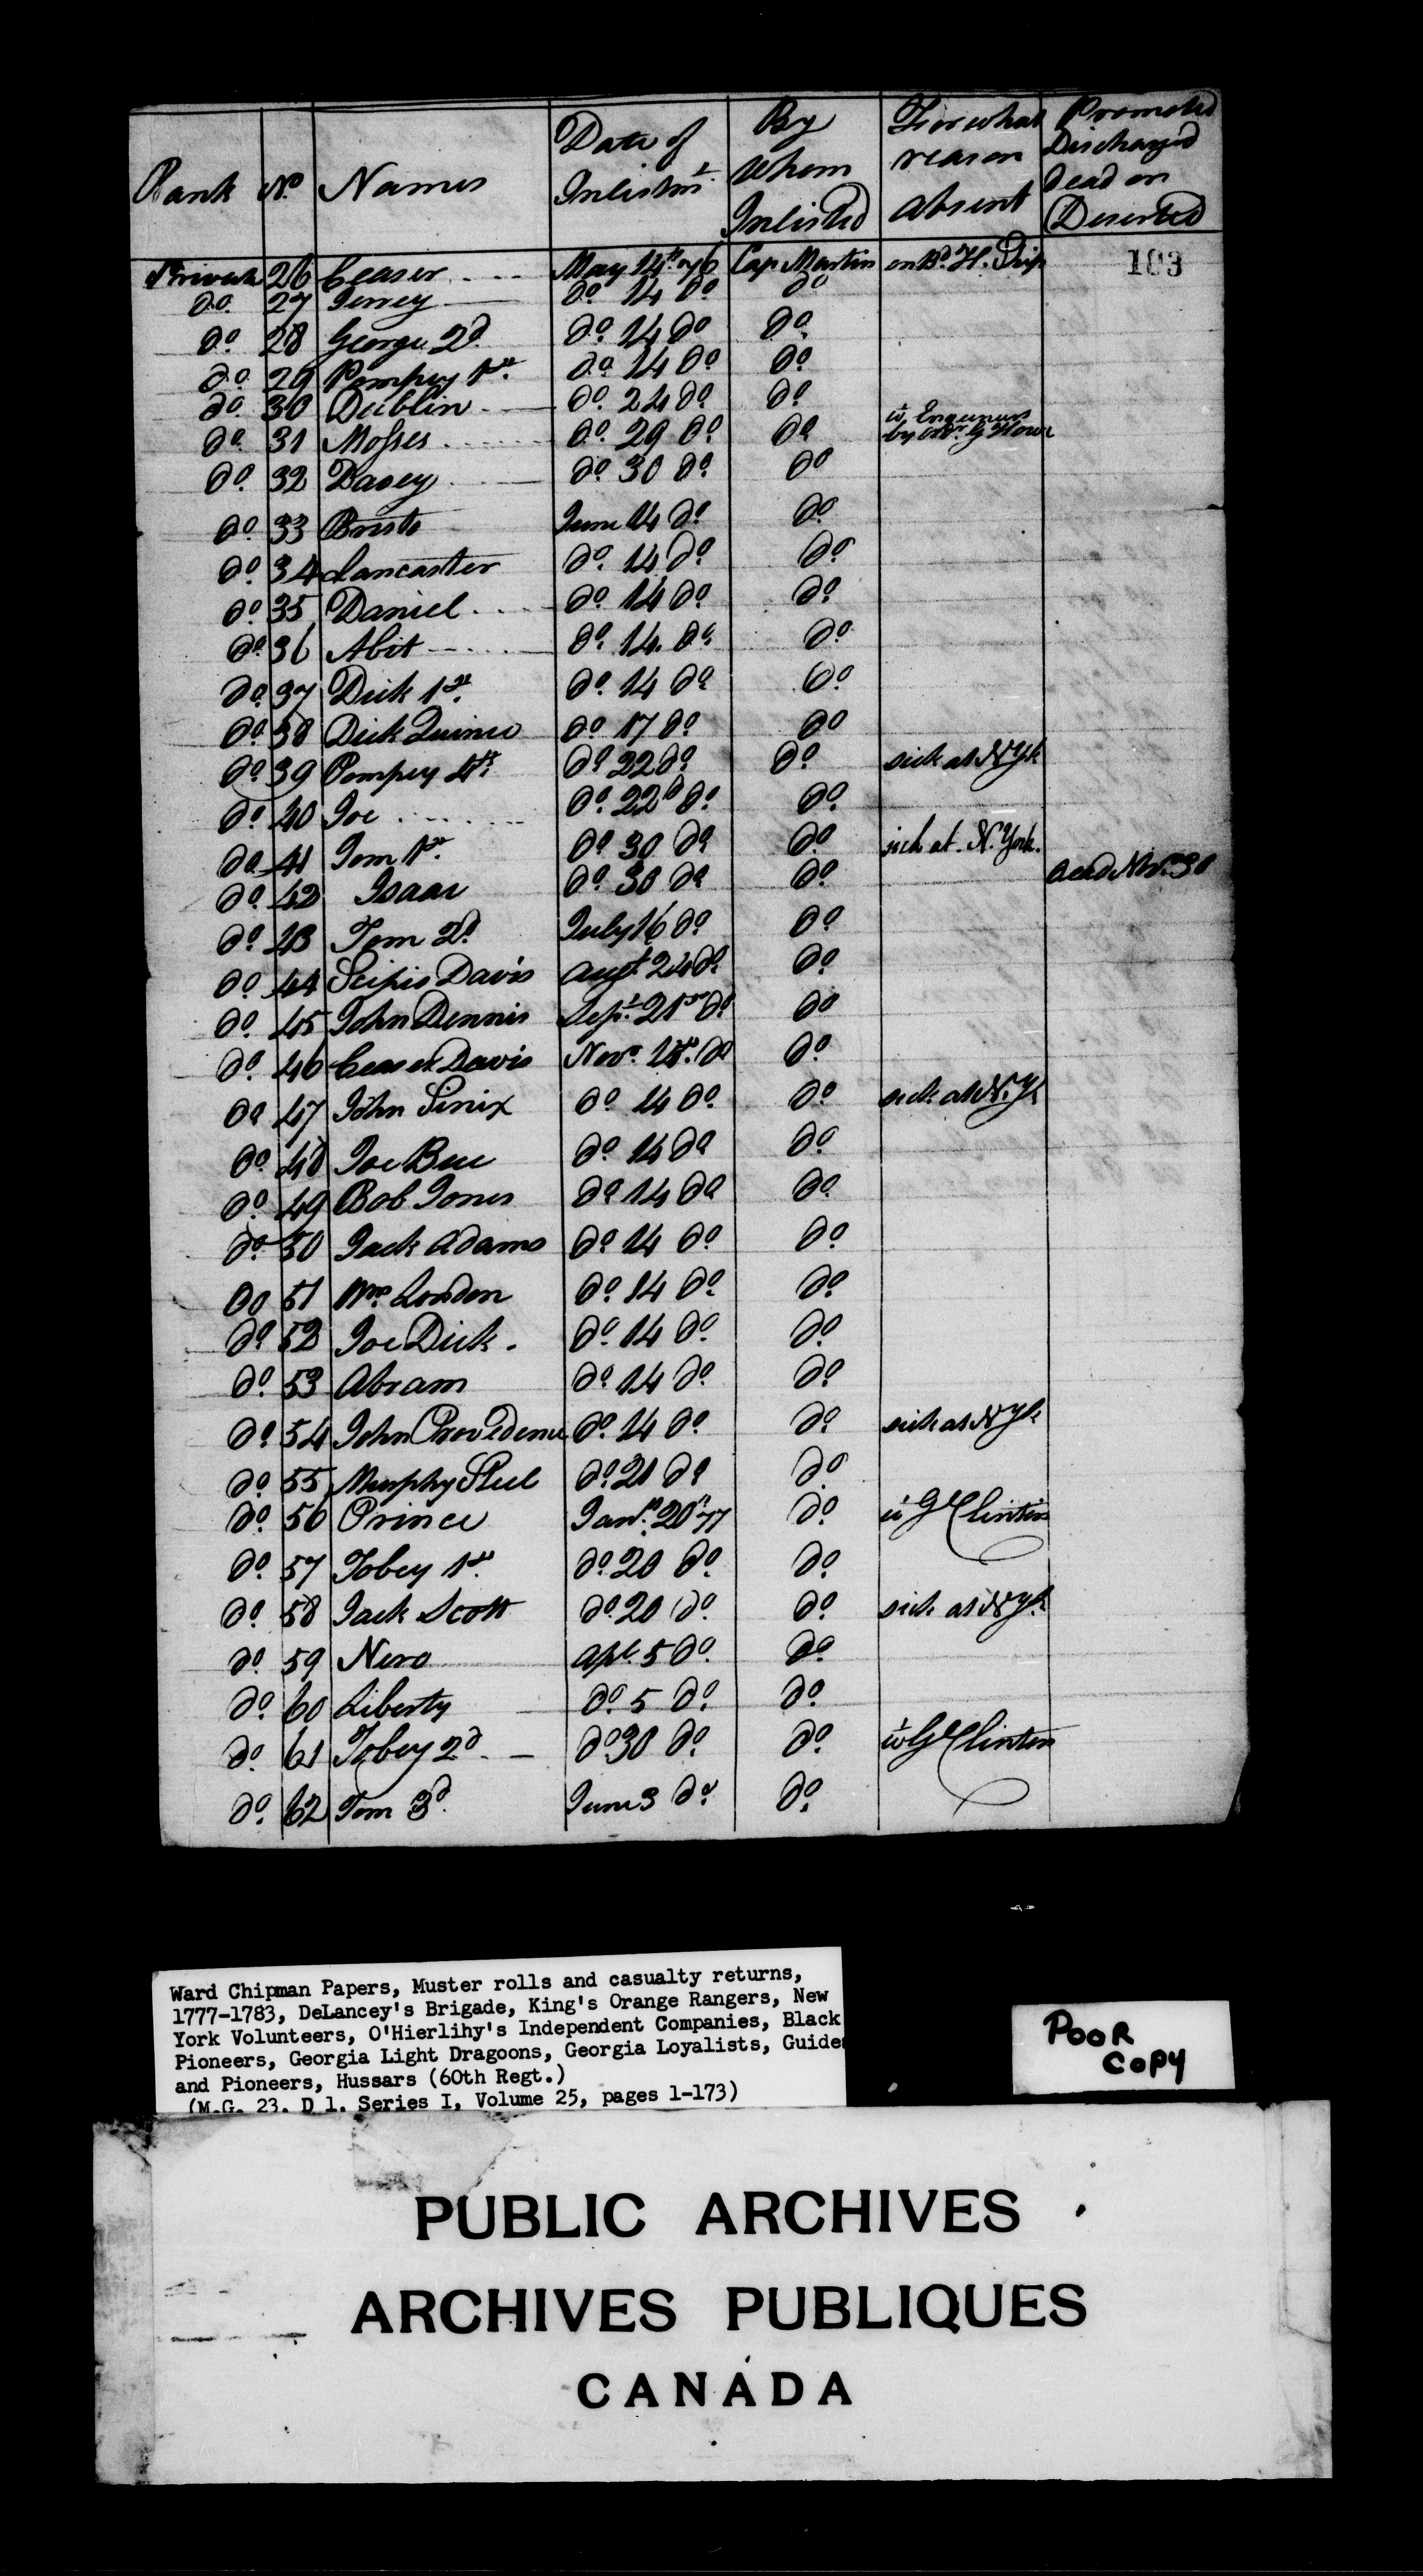 Rank No. Names Date of Inlistmt. By whom Inlisted For what reason absent Promoted Discharged Dead or Deserted
103
Private 26 Ceaser May 14th 76 Cap Martin on Bd. H. Ship
do. 27 Jerrey do 14 do do
do 28 George 2d. do 14 do do
do 29 Pompey 1st. do 14 do do
do 30 Dublin do 24 do do
do 31 Moses do 29 do do wt. Engineers by Ordr. G Howe
do 32 Davey do 30 do do
do 33 Bristo June 14 do do
do 34 Lancaster do 14 do do
do 35 Daniel do 14 do do
do 36 Abit do 14 do do
do 37 Dick 1st. do 14 do do
do 38 Dick Quince do 17 do do
do 39 Pompey 4th. do 22 do do sick at N Yk
do 40 Joe do 22d do do
do 41 Tom 1st. do 30 do do sick at N. York.
do 42 Isaac do 30 do do dead Novr. 30
do 43 Tom 2d. July 16 do do
do 44 Scipio Davis Augt. 24 do do
do 45 John Dennis Sept. 21st do do
do 46 Ceaser Davis Novr. do do
do 47 John Sinix do 14 do do sick at N. Yk
do 48 Joe Bee do 14 do do
do 49 Bob Jones do 14 do do
do 50 Jack Adams do 14 do do
do 51 Wm. London do 14 do do
do 52 Joe Dick. do 14 do do
do 53 Abram do 14 do do
do 54 John Providence do 14 do do sick at N Yk
do 55 Murphy Steel do 21 do do
do 56 Prince Jany. 20th 77 do wt G Clinton
do 57 Tobey 1st. do 20 do do
do 58 Jack Scott do 20 do do sick at N Yk
do 59 Nero Apl. 5 do do
do 60 Liberty do 5 do do
do 61 Tobey 2d do 30 do do wt G Clinton
do 62 Tom 3d. June 3 do do
Ward Chipman Papers, Muster rolls and casualty returns,
1777-1783, DeLancey's Brigade, King's Orange Rangers, New
York Volunteers, O'Hierlihy's Independent Companies, Black
Pioneers, Georgia Light Dragoons, Georgia Loyalists, Guides
and Pioneers, Hussars (60th Regt.)
(M.G. 23, D 1, Series I, Volume 25, pages 1-173)
POOR
COPY
PUBLIC ARCHIVES
ARCHIVES PUBLIQUES
CANADA